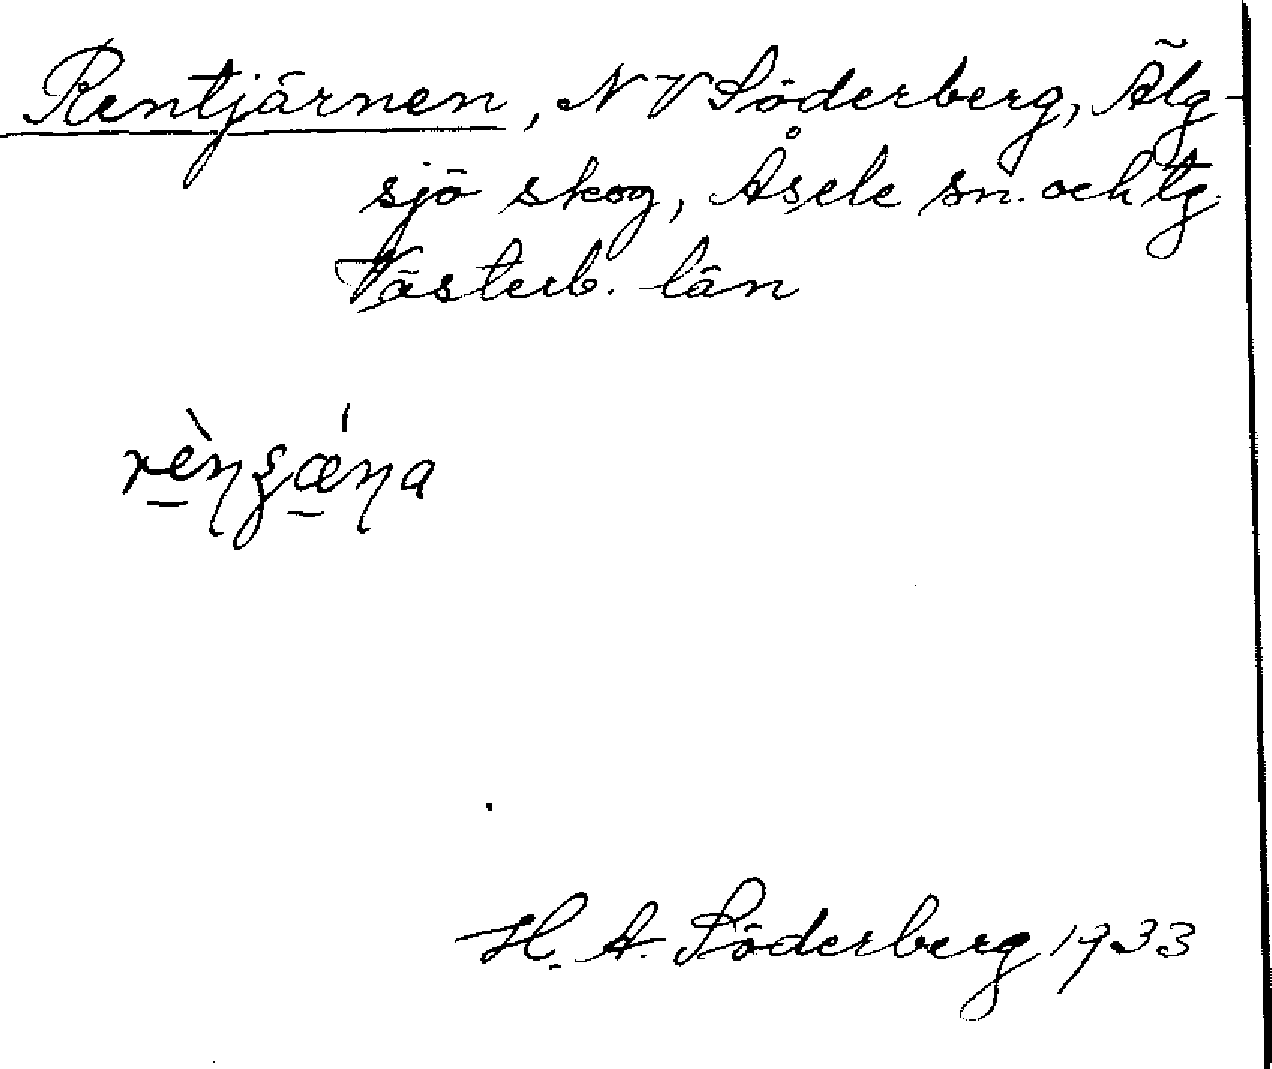 Rentjärnen, NV Söderberg, Älg-
sjö skog, Åsele sn. och tg.
Västerb. län
rèƞʂǽƞa
H. A. Söderberg 1933